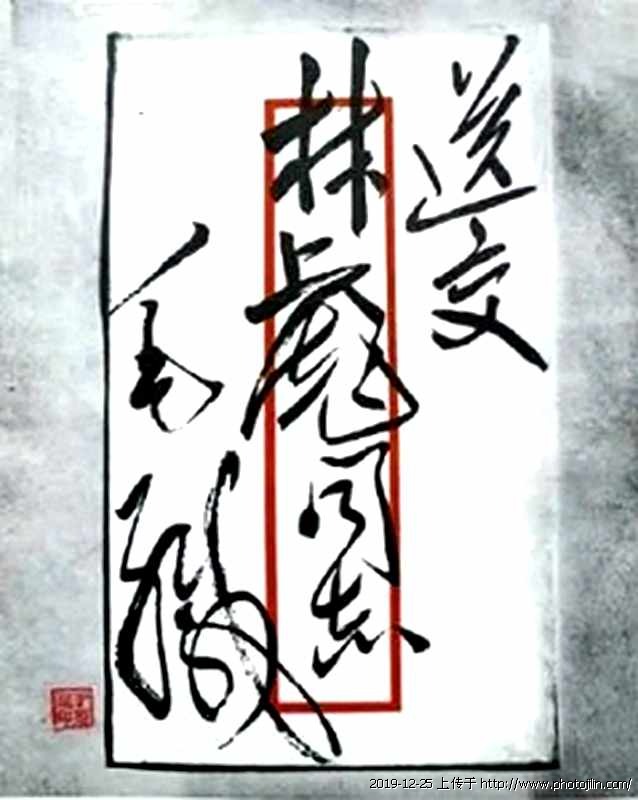 送交
林彪同志
毛緘
2019-12-25 上传于 http://www.photojilin.com/